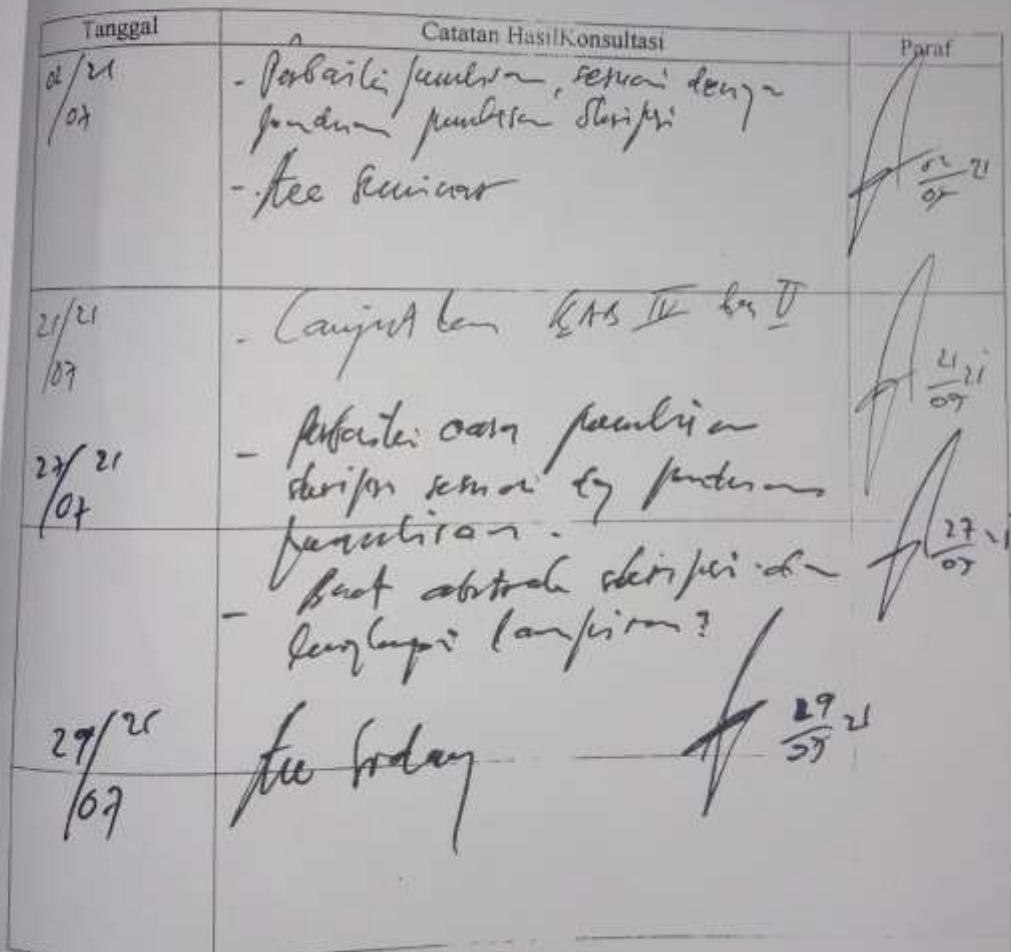 Tanggal Catatan HasilKonsultasi Paraf
02/21
/07
- Perbaiki penulisan, sesuai dengan
panduan penulisan Skripsi
- Acc Seminar
02/07 21
21/21
/07
- Lanjutkan BAB IV dan V
21/07 21
27/21
/07
- Perbaiki cara penulisan
skripsi sesuai dg panduan
penulisan.
27/07 21
- Buat abstrak skripsi dan
lengkapi lampiran?
29/21
/07
Acc Sidang
29/07 21